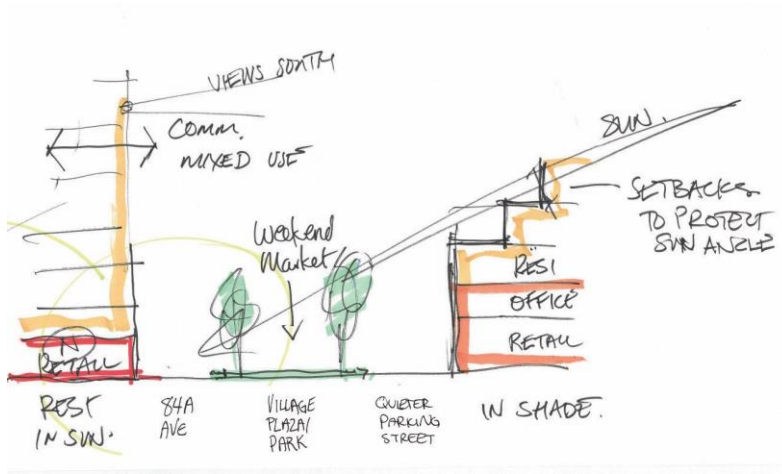 VIEWS SOUTH
COMM.
MIXED USE
SUN.
SETBACKS
TO PROTECT
SUN ANGLE
Weekend
Market
RESI
OFFICE
RETAIL
N
RETAIL
REST
IN SUN.
84A
AVE
VILLAGE
PLAZA/
PARK
QUIETER
PARKING
STREET
IN SHADE.